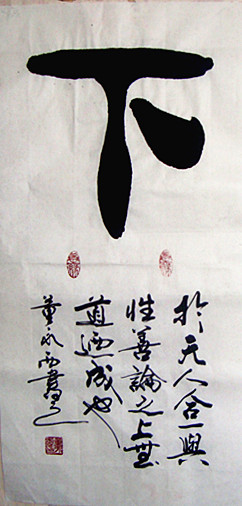 下
於天人合一與
性善論之上無
道迺成也
董永西書